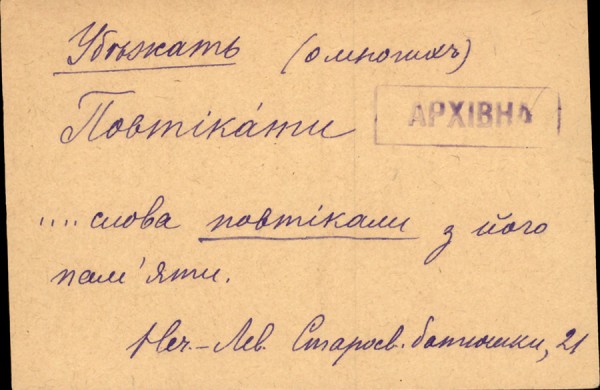 Убѣжать (о многихъ)
Повтіка́ти
АРХІВНА
.... слова повтікали з його
пам'яти.
Неч.-Лев. Старосв. батюшки, 21